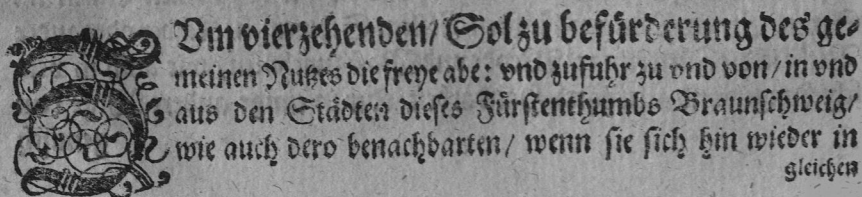 ZVm vierzehenden/ Sol zu befürderung des ge-
meinen Nutzes die freye abe: vnd zufuhr zu vnd von/ in vnd
aus den Städten dieses Fürstenthumbs Braunschweig/
wie auch dero benachbarten/ wenn sie sich hin wieder in
gleichen